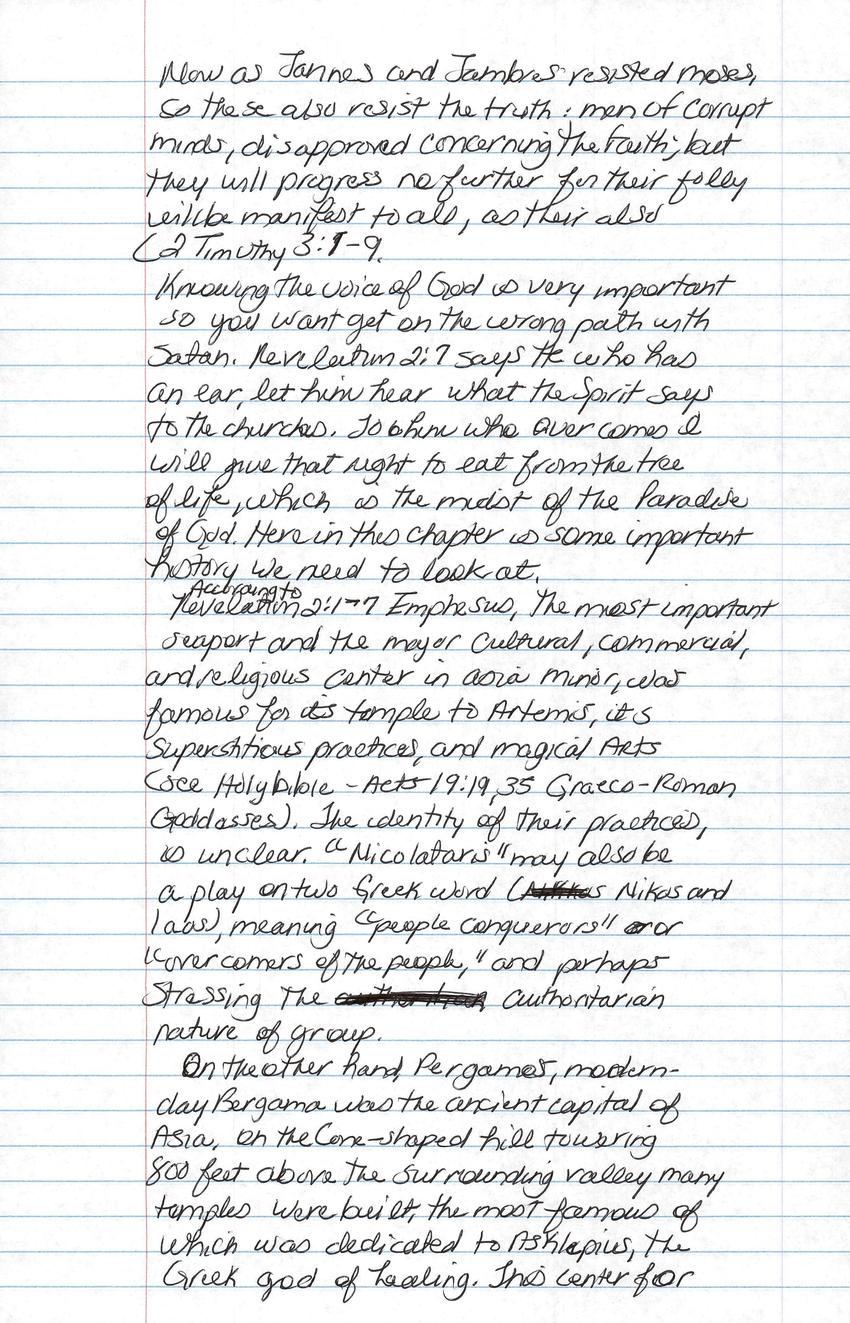 Now as Jannes and Jambres resisted moses,
so these also resist the truth: men of corrupt
minds, disapproved concerning the faith; but
they will progress no further for their folly
will be manifest to all, as their also
(2 Timothy 3:1-9.
Knowing the voice of God is very important
so you want get on the wrong path with
Satan. Revelation 2:7 says He who has
an ear, let him hear what the Spirit says
to the churches. To him who over comes I
will give that right to eat from the tree
of life, which is the midst of the Paradise
of God. Here in this chapter is some important
history we need to look at.
According to
Revelation 2:1-7 Emphesus, The most important
seaport and the mayor cultural, commercial,
and religious center in asia minor, was
famous for its temple to Artemis, it's
superstitious practices, and magical Arts
(see Holy bible - Acts 19:19,35 Graeco-Roman
Goddasses). The identity of their practices,
is unclear. "Nicolataris" may also be
a play on two Greek word (Nikos and
laos), meaning "people conquerors" or
"over comers of the people," and perhaps
Stressing The authoritarian
nature of group.
On the other hand, Pergamos, modern-
day Bergama was the ancient capital of
Asia, on the Cone-shaped hill towering
800 feet above the surrounding valley many
temples were built, the most famous of
which was dedicated to Asklepius, the
Greek god of healing. This center for